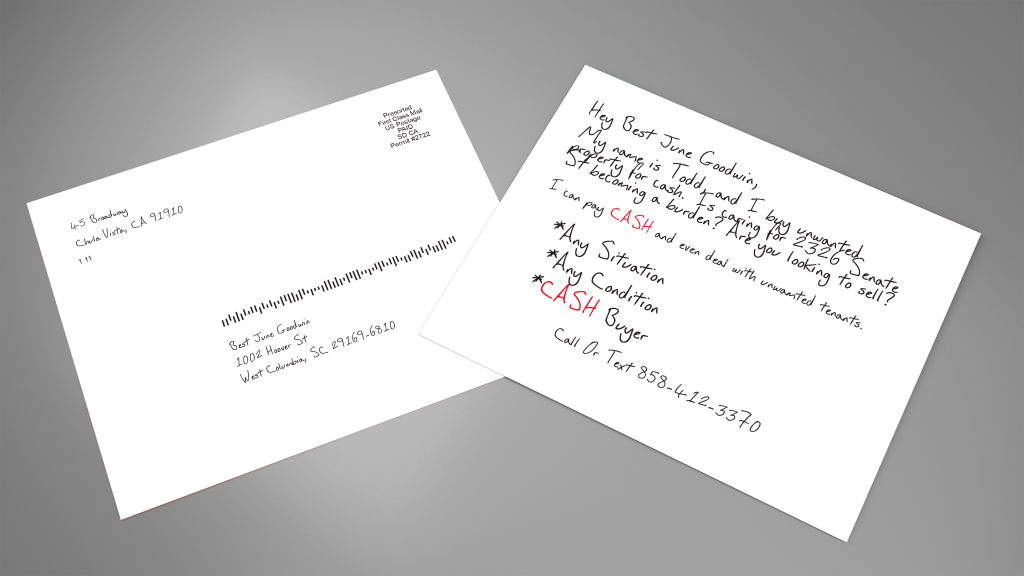 Presorted
First Class Mail
US Postage
PAID
SD CA
Permit #2722
45 Broadway
Chula Vista, CA 91910
1 11
Best June Goodwin
1002 Hoover St
West Columbia, SC 29169-6810
Hey Best June Goodwin,
My name is Todd, and I buy unwanted
property for cash. Is caring for 2326 Senate
St becoming a burden? Are you looking to sell?
I can pay CASH and even deal with unwanted tenants.
*Any Situation
*Any Condition
*CASH Buyer
Call Or Text 858-412-3370